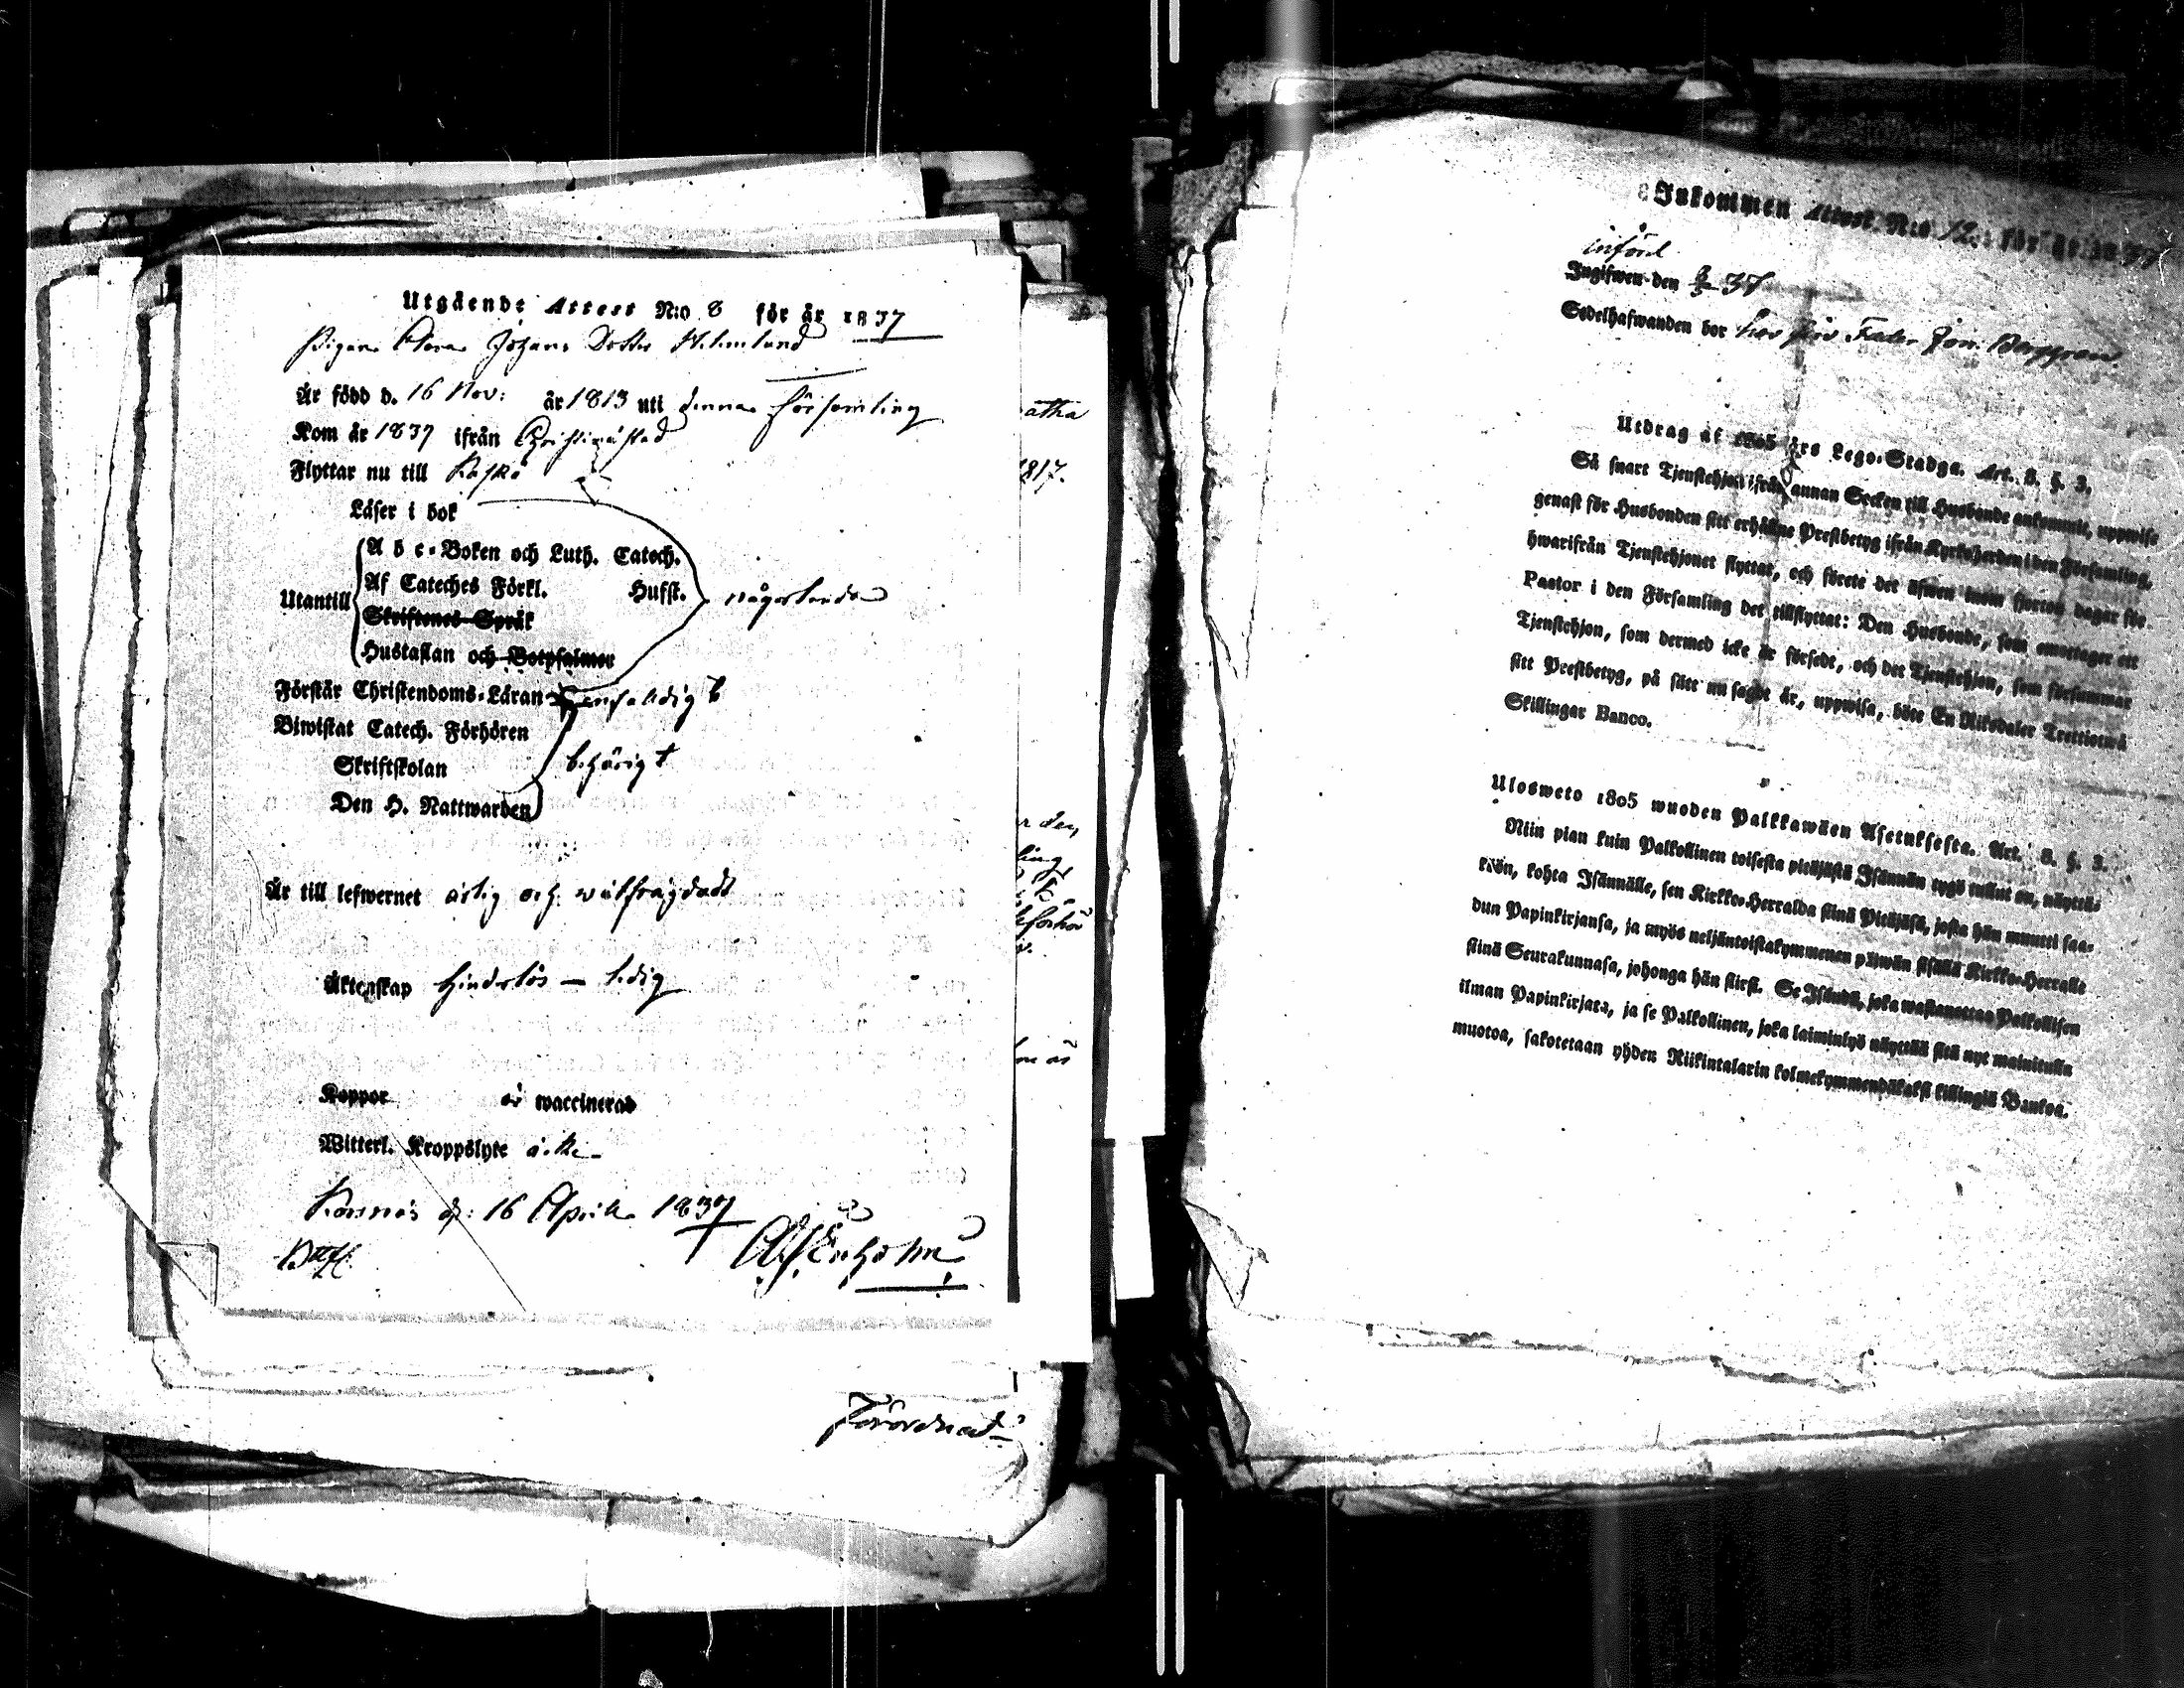 Utgående Attest N:o 8 för år 1837
Pigan Clara Johans Dotter Holmlund
Är född d. 16 Nov: år 1813 uti denna församling
Kom år 1837 ifrån Christinæstad
Flyttar nu till Kaskö
Läser i bok
A b c-Boken och Luth. Catech.
Af Cateches Förkl. Hufst.
Utantill
någorlunda
Skriftenes Språk
Hustaflan och Botpsalmer
Förstår Christendoms-Läran enfaldigt
Biwistat Catech. Förhören
Skriftskolan behörigt
Den H. Nattwarden
Är till lefwernet ärlig och wälfrägdad
Äktenskap hinderlös — ledig
Koppor är waccinerad
Witterl. Kroppslyte icke
d: 16 Aprill 1837
Förordnad
atha
1817.
Inkommen Attest N:o 12 för år 1837
införd
Ingifwen den 3/5 37
Sedelhafwanden bor hos sin Fader Jon. Berggren
Utdrag af 1805 års Lego-Stadga. Art. 3. §. 3.
Så snart Tjenstehjon ifrån annan Socken till Husbonde ankommit, uppwise
genast för Husbonden sitt erhållne Prestbetyg ifrån Kyrkoherden i den Församling,
hwarifrån Tjenstehjonet flyttat, och förete det äfwen inom fjorton dagar för
Pastor i den Församling det tillflyttat: Den Husbonde, som emottager ett
Tjenstehjon, som dermed icke är försedt, och det Tjenstehjon, som försummar
sitt Prestbetyg, på sätt nu sagdt är, uppwisa, böte En Riksdaler Trettiotwå
Skillingar Banco.
Ulosweto 1805 wuoden Palkkawäen Asetuksesta. Art. 3. §. 3.
Niin pian kuin Palkollinen toisesta pitäjästä Isännän tygö tullut on, näyttä-
köön, kohta Isännälle, sen Kirkko-Herralda siinä Pitäjäsä, josta hän muutti saa-
dun Papinkirjansa, ja myös neljäntoistakymmenen päiwän sisällä Kirkko-Herralle
siinä Seurakunnasa, johonga hän siirsi. Se Isändä, joka wastanottaa Palkollisen
ilman Papinkirjata, ja se Palkollinen, joka laiminlyö näyttää sitä nyt mainitulla
muotoa, sakotetaan yhden Riikintalarin kolmekymmendäkaksi killingiä Bankoa.